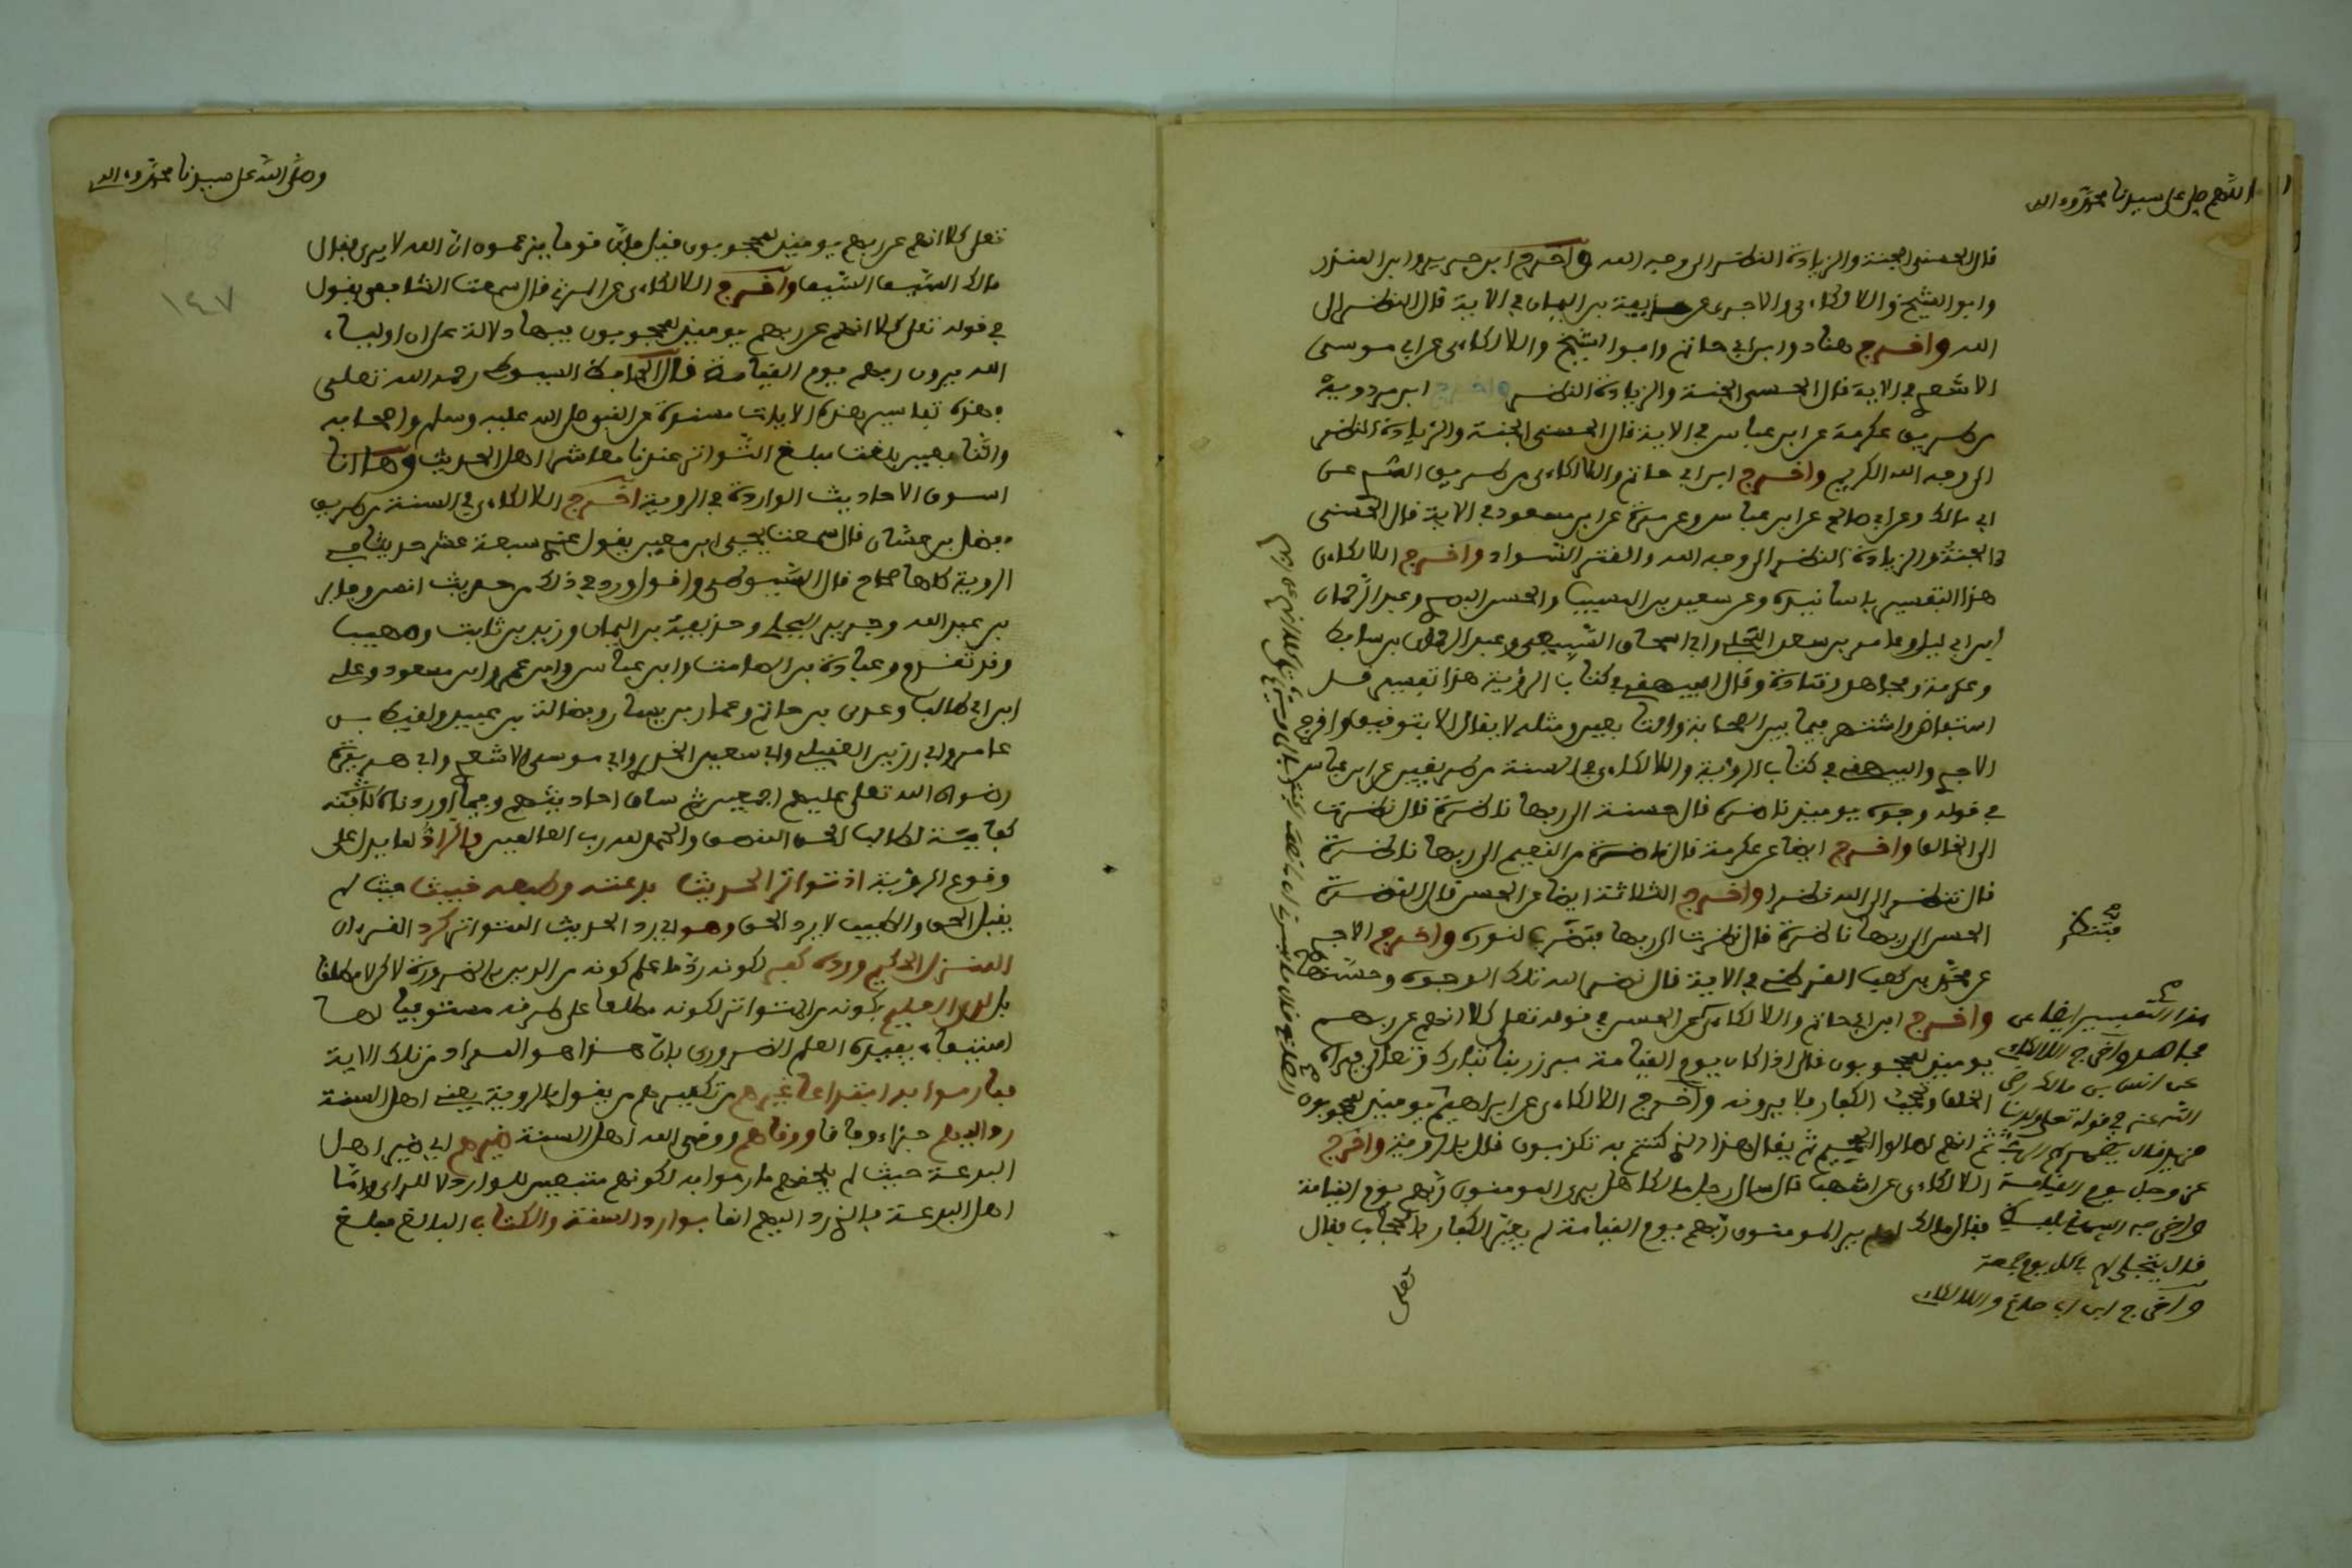 اللهم صل على سيدنا محمد وءاله
قال الحسنى الجنة والزيادة النظر الى وجه الله واخرج ابن جرير وابن المنذر
وابو الشيخ واللالكاءى والاجرى عن حذيفة بن اليمان في الاية قال النظر الى
الله واخرج هناد وابن ابي حاتم وابو الشيخ واللالكاءى عن ابي موسى
الاشعرى في الاية قال الحسنى الجنة والزيادة النظر واخرج ابن مردوية
من طريق عكرمة عن ابن عباس في الاية قال الحسنى الجنة والزيادة النظر
الى وجه الله الكريم واخرج ابن ابي حاتم واللالكاءى من طريق السدى عن
ابي مالك وعن ابي صالح عن ابن عباس وعن مرة عن ابن مسعود في الاية قال الحسنى
الجنة والزيادة النظر الى وجه الله والقتر السواد واخرج اللالكاءى
هذا التفسير باسانيده وعن سعيد بن المسيب والحسن البصرى وعبد الرحمان
ابن ابي ليلى وعامر بن سعد البجلى وابي اسحاق السبيعى وعبد الرحمان بن سابط
وعكرمة ومجاهد وقتادة وقال البيهقى في كتاب الرؤية هذا تفسير قد
استفاض واشتهر فيما بين الصحابة والتابعين ومثله لا يقال الا بتوقيف واخرج
الاجرى والبيهقى في كتاب الرؤية واللالكاءى في السنة من طريقين عن ابن عباس
في قوله وجوه يومئذ ناضرة قال حسنة الى ربها ناظرة قال نظرت
الى الخالق واخرج ايضا عن عكرمة قال ناضرة من النعيم الى ربها ناظرة
قال تنظر الى الله نظرا واخرج الثلاثة ايضا عن الحسن قال النضرة
الحسن الى ربها ناظرة قال نظرت الى ربها فنضرت لنوره واخرج الاجرى
عن محمد بن كعب القرظى في الاية قال نضر الله تلك الوجوه وحسنها
واخرج ابن ابي حاتم واللالكاءى عن الحسن في قوله تعلى كلا انهم عن ربهم
يومئذ لمحجوبون قال اذا كان يوم القيامة برز ربنا تبارك وتعلى فيراه
الخلق وتحجب الكفار فلا يرونه واخرج اللالكاءى عن ابراهيم يومئذ لمحجوبون
ثم انهم لصالوا الجحيم ثم يقال هذا الذى كنتم به تكذبون قال بالرؤية واخرج
اللالكاءى عن اشهب قال سال رجل مالكا هل يرى المومنون ربهم يوم القيامة
فقال مالك لو لم ير المومنون ربهم يوم القيامة لم يعير الكفار بالحجاب فقال
تعلى
هذا التفسير ايضا عن
مجاهد واخرج اللالكاءى
عن انس بن مالك رضى
الله عنه في قوله تعلى ولدينا
مزيد قال يظهر لهم الرب
عز وجل يوم القيامة
قال يتجلى لهم كل يوم جمعة
واخرج ابن ابي حاتم واللالكاءى
وصلى الله على سيدنا محمد وءاله
١٤٧
تعلى كلا انهم عن ربهم يومئذ لمحجوبون فقيل فان قوما يزعمون ان الله لا يرى فقال
مالك السيف السيف واخرج اللالكاءى عن المزنى قال سمعت الشافعى يقول
في قوله تعلى كلا انهم عن ربهم يومئذ لمحجوبون فيها دلالة على ان اولياء
الله يرون ربهم يوم القيامة قال الحافظ السيوطى رحمه الله تعلى
وهذه تفاسير هذه الايات مسندة عن النبي صلى الله عليه وسلم واصحابه
والتابعين بلغت مبلغ التواتر عندنا معاشر اهل الحديث وها انا
اسوق الاحاديث الواردة في الروية اخرج اللالكاءى في السنة من طريق
مفضل بن غسان قال سمعت يحيى ابن معين يقول عندى سبعة عشر حديثا في
الروية كلها صحاح قال السيوطى واقول ورد في ذلك من حديث انس وجابر
بن عبد الله وجرير البجلى وحذيفة بن اليمان وزيد بن ثابت وصهيب
وقد تقدم وعبادة بن الصامت وابن عباس وابن عمر وابن مسعود وعلى
ابن ابي طالب وعدى بن حاتم وعمار بن ياسر وفضالة بن عبيد ولقيط بن
عامر وابي رزين العقيلى وابي سعيد الخدرى وابي موسى الاشعرى وابي هريرة
رضوان الله تعلى عليهم اجمعين ثم ساق احاديثهم وفيما اوردناه
كفاية لطالب الحق المنصف والحمد لله رب العالمين فالراد لما يدل على
وقوع الرؤية اذ تواتر الحديث بدعته وطبعه خبيث حيث لم
يقبل الحق والطيب لا يرد الحق وهو اى رد الحديث المتواتر كرد القرءان
المنزل الحكيم ورده كفر لكونه رد ما علم كونه من الدين بالضرورة لاكن لا مطلقا
بل لدى العليم بكونه من المتواتر لكونه مطلعا على طرقه مستوفيا لها
استيفاء يفيده العلم الضرورى بان هذا هو المراد من تلك الاية
فما رموا به ابتداعا غيرهم من تكفيرهم من يقول بالروية يعنى اهل السنة
رد اليهم جزاء وفاقا ووقاهم ووقى الله اهل السنة ضيرهم اى ضير اهل
البدعة حيث لم يلحقهم ما رموا به لكونهم متبعين للوارد لا للراى واما
اهل البدعة فالذى رد اليهم انما بوارد السنة والكتاب البالغ مبلغ